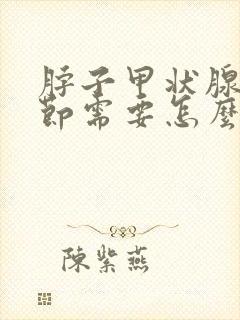 脖子甲状腺
節需要怎麼
陳紫燕